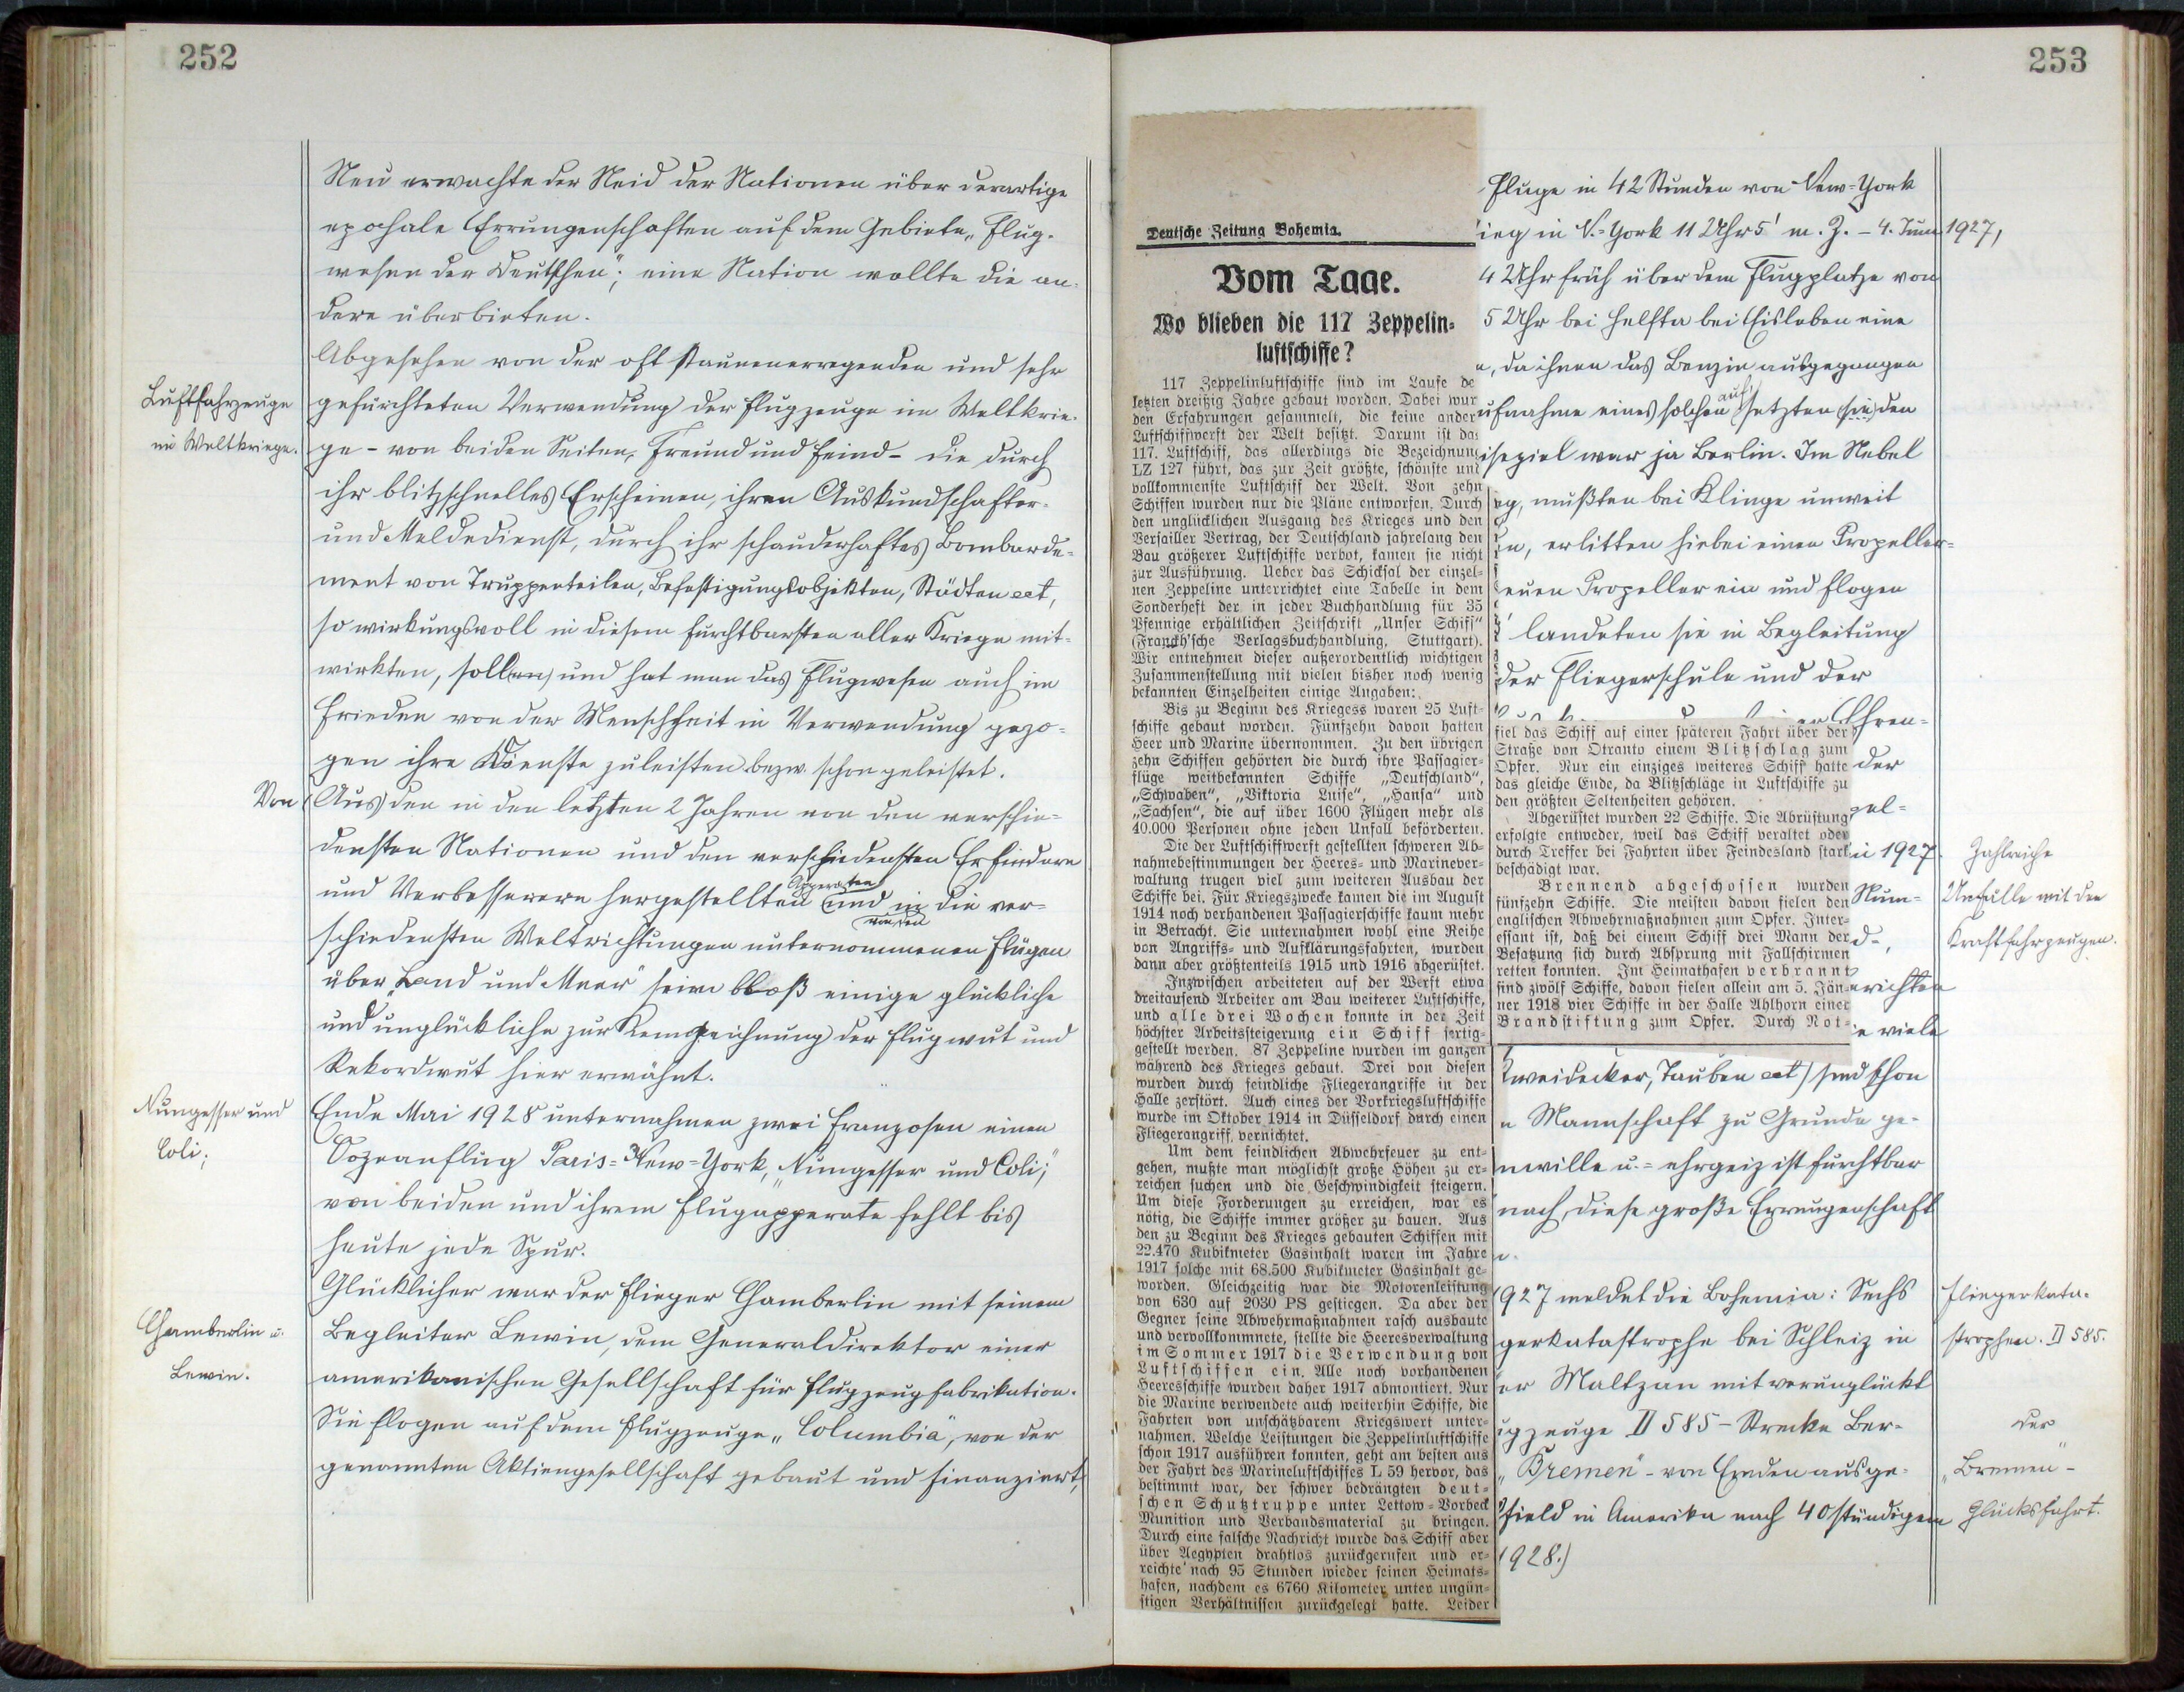 252
Neu erwachte der Neid der Nationen über derartige
epochale Errungenschaften auf dem Gebiete „Flug-
wesen der Deutschen“; eine Nation wollte die an-
dere überbieten.
Abgesehen von der oft staunenerregenden und sehr
Luftfahrzeuge
im Weltkriege.
gefürchteten Verwendung der Flugzeuge im Weltkrie-
ge - von beiden Seiten, Freund und Feind - die durch
ihr blitzschnelles Erscheinen, ihren Auskundschafter-
und Meldedienst, durch ihr schauderhaftes Bombarde-
ment von Truppenteilen, Befestigungsobjekten, Städten ect,
so wirkungsvoll in diesem furchtbarsten aller Kriege mit-
wirkten, sollen und hat man das Flugwesen auch im
Frieden von der Menschheit in Verwendung gezo-
gen ihre Dienste zu leisten bezw. schon geleistet.
Von
(Aus) den in den letzten 2 Jahren von den verschie-
densten Nationen und den verschiedensten Erfindern
Apperaten
und Verbesserern hergestellten und in die ver-
von den
schiedensten Weltrichtungen unternommenen Flügen
über „Land und Meer“ seien bloß einige glückliche
und unglückliche zur Kennzeichnung der Flugwut und
Rekordwut hier erwähnt.
Nungesser und
Coli;
Ende Mai 1928 unternahmen zwei Franzosen einen
Ozeanflug Paris=New=York, „Nungesser und Coli;“
von beiden und ihrem Flugapperate fehlt bis
heute jede Spur.
Glücklicher war der Flieger Chamberlin mit seinem
Chamberlin u.
Lewin.
Begleiter Lewin, dem Generaldirektor einer
amerikanischen Gesellschaft für Flugzeugfabrikation.
Sie flogen auf dem Flugzeuge „Columbia“, von der
genannten Aktiengesellschaft gebaut und finanziert,
253
Deutsche Zeitung Bohemia.
Vom Tage.
Wo blieben die 117 Zeppelin-
luftschiffe?
117 Zeppelinluftschiffe sind im Laufe de
letzten dreißig Jahre gebaut worden. Dabei wur
den Erfahrungen gesammelt, die keine ander
Luftschiffwerft der Welt besitzt. Darum ist das
117. Luftschiff, das allerdings die Bezeichnung
LZ 127 führt, das zur Zeit größte, schönste und
vollkommenste Luftschiff der Welt. Von zehn
Schiffen wurden nur die Pläne entworfen. Durch
den unglücklichen Ausgang des Krieges und den
Versailler Vertrag, der Deutschland jahrelang den
Bau größerer Luftschiffe verbot, kamen sie nicht
zur Ausführung. Ueber das Schicksal der einzel-
nen Zeppeline unterrichtet eine Tabelle in dem
Sonderheft der in jeder Buchhandlung für 35
Pfennige erhältlichen Zeitschrift „Unser Schiff“
(Franckh'sche Verlagsbuchhandlung, Stuttgart).
Wir entnehmen dieser außerordentlich wichtigen
Zusammenstellung mit vielen bisher noch wenig
bekannten Einzelheiten einige Angaben:
Bis zu Beginn des Kriegess waren 25 Luft-
schiffe gebaut worden. Fünfzehn davon hatten
Heer und Marine übernommen. Zu den übrigen
zehn Schiffen gehörten die durch ihre Passagier-
flüge weitbekannten Schiffe „Deutschland“,
„Schwaben“, „Viktoria Luise“, „Hansa“ und
„Sachsen“, die auf über 1600 Flügen mehr als
40.000 Personen ohne jeden Unfall beförderten.
Die der Luftschiffwerft gestellten schweren Ab-
nahmebestimmungen der Heeres- und Marinever-
waltung trugen viel zum weiteren Ausbau der
Schiffe bei. Für Kriegszwecke kamen die im August
1914 noch verhandenen Passagierschiffe kaum mehr
in Betracht. Sie unternahmen wohl eine Reihe
von Angriffs- und Aufklärungsfahrten, wurden
dann aber größtenteils 1915 und 1916 abgerüstet.
Inzwischen arbeiteten auf der Werft etwa
dreitausend Arbeiter am Bau weiterer Luftschiffe,
und alle drei Wochen konnte in der Zeit
höchster Arbeitssteigerung ein Schiff fertig-
gestellt werden. 87 Zeppeline wurden im ganzen
während des Krieges gebaut. Drei von diesen
wurden durch feindliche Fliegerangriffe in der
Halle zerstört. Auch eines der Vorkriegsluftschiffe
wurde im Oktober 1914 in Düsseldorf durch einen
Fliegerangriff vernichtet.
Um dem feindlichen Abwehrfeuer zu ent-
gehen, mußte man möglichst große Höhen zu er-
reichen suchen und die Geschwindigkeit steigern.
Um diese Forderungen zu erreichen, war es
nötig, die Schiffe immer größer zu bauen. Aus
den zu Beginn des Krieges gebauten Schiffen mit
22.470 Kubikmeter Gasinhalt waren im Jahre
1917 solche mit 68.500 Kubikmeter Gasinhalt ge-
worden. Gleichzeitig war die Motorenleistung
von 630 auf 2030 PS gestiegen. Da aber der
Gegner seine Abwehrmaßnahmen rasch ausbaute
und vervollkommnete, stellte die Heeresverwaltung
im Sommer 1917 die Verwendung von
Luftschiffen ein. Alle noch vorhandenen
Heeresschiffe wurden daher 1917 abmontiert. Nur
die Marine verwendete auch weiterhin Schiffe, die
Fahrten von unschätzbarem Kriegswert unter-
nahmen. Welche Leistungen die Zeppelinluftschiffe
schon 1917 ausführen konnten, geht am besten aus
der Fahrt des Marineluftschiffes L 59 hervor, das
bestimmt war, der schwer bedrängten deut-
schen Schutztruppe unter Lettow-Vorbeck
Munition und Verbandsmaterial zu bringen.
Durch eine falsche Nachricht wurde das Schiff aber
über Aegypten drahtlos zurückgerufen und er-
reichte nach 95 Stunden wieder seinen Heimats-
hafen, nachdem es 6760 Kilometer unter ungün-
stigen Verhältnissen zurückgelegt hatte. Leider
fiel das Schiff auf einer späteren Fahrt über der
Straße von Otranto einem Blitzschlag zum
Opfer. Nur ein einziges weiteres Schiff hatte
das gleiche Ende, da Blitzschläge in Luftschiffe zu
den größten Seltenheiten gehören.
Abgerüstet wurden 22 Schiffe. Die Abrüstung
erfolgte entweder, weil das Schiff veraltet oder
durch Treffer bei Fahrten über Feindesland stark
beschädigt war.
Brennend abgeschossen wurden
fünfzehn Schiffe. Die meisten davon fielen den
englischen Abwehrmaßnahmen zum Opfer. Inter-
essant ist, daß bei einem Schiff drei Mann der
Besatzung sich durch Absprung mit Fallschirmen
retten konnten. Im Heimathafen verbrannt
sind zwölf Schiffe, davon fielen allein am 5. Jän-
ner 1918 vier Schiffe in der Halle Ahlhorn einer
Brandstiftung zum Opfer. Durch Not-
Fluge in 42 Stunden von New-York
ieg in N.=York 11 Uhr 5' m. Z. - 4. Juni 1927,
4 Uhr früh über dem Flugplatze von
5 Uhr bei Helfta bei Eisleben eine
n, da ihnen das Benzin ausgegangen
auf
ufnahme eines solchen setzten (sie) den
iseziel war ja Berlin. Im Nebel
eg, mußten bei Klinge unweit
n, erlitten hiebei einen Propeller=
euen Propeller ein und flogen
landeten sie in Begleitung
der Fliegerschule und der
Ehren=
der
gel=
1927.
Num-
d-,
erichten
viele
Zahlreiche
Unfälle mit den
Kraftfahrzeugen.
Zweidecker, Tauben ect) sind schon
n Mannschaft zu Grunde ge-
nwille u.= ehrgeiz ist furchtbar
nach, diese große Errungenschaft
n.
1927 meldet die Bohemia: Sechs
gerkatastrophe bei Schleiz in
er Maltzan mit verunglückt
ugzeuge D 585 - Strecke Ber-
„Bremen“ - von Emden ausge-
field in Amerika nach 40 stündigem
1928.)
Fliegerkata-
strophen. D 585.
der
„Bremen“-
Glücksfahrt.